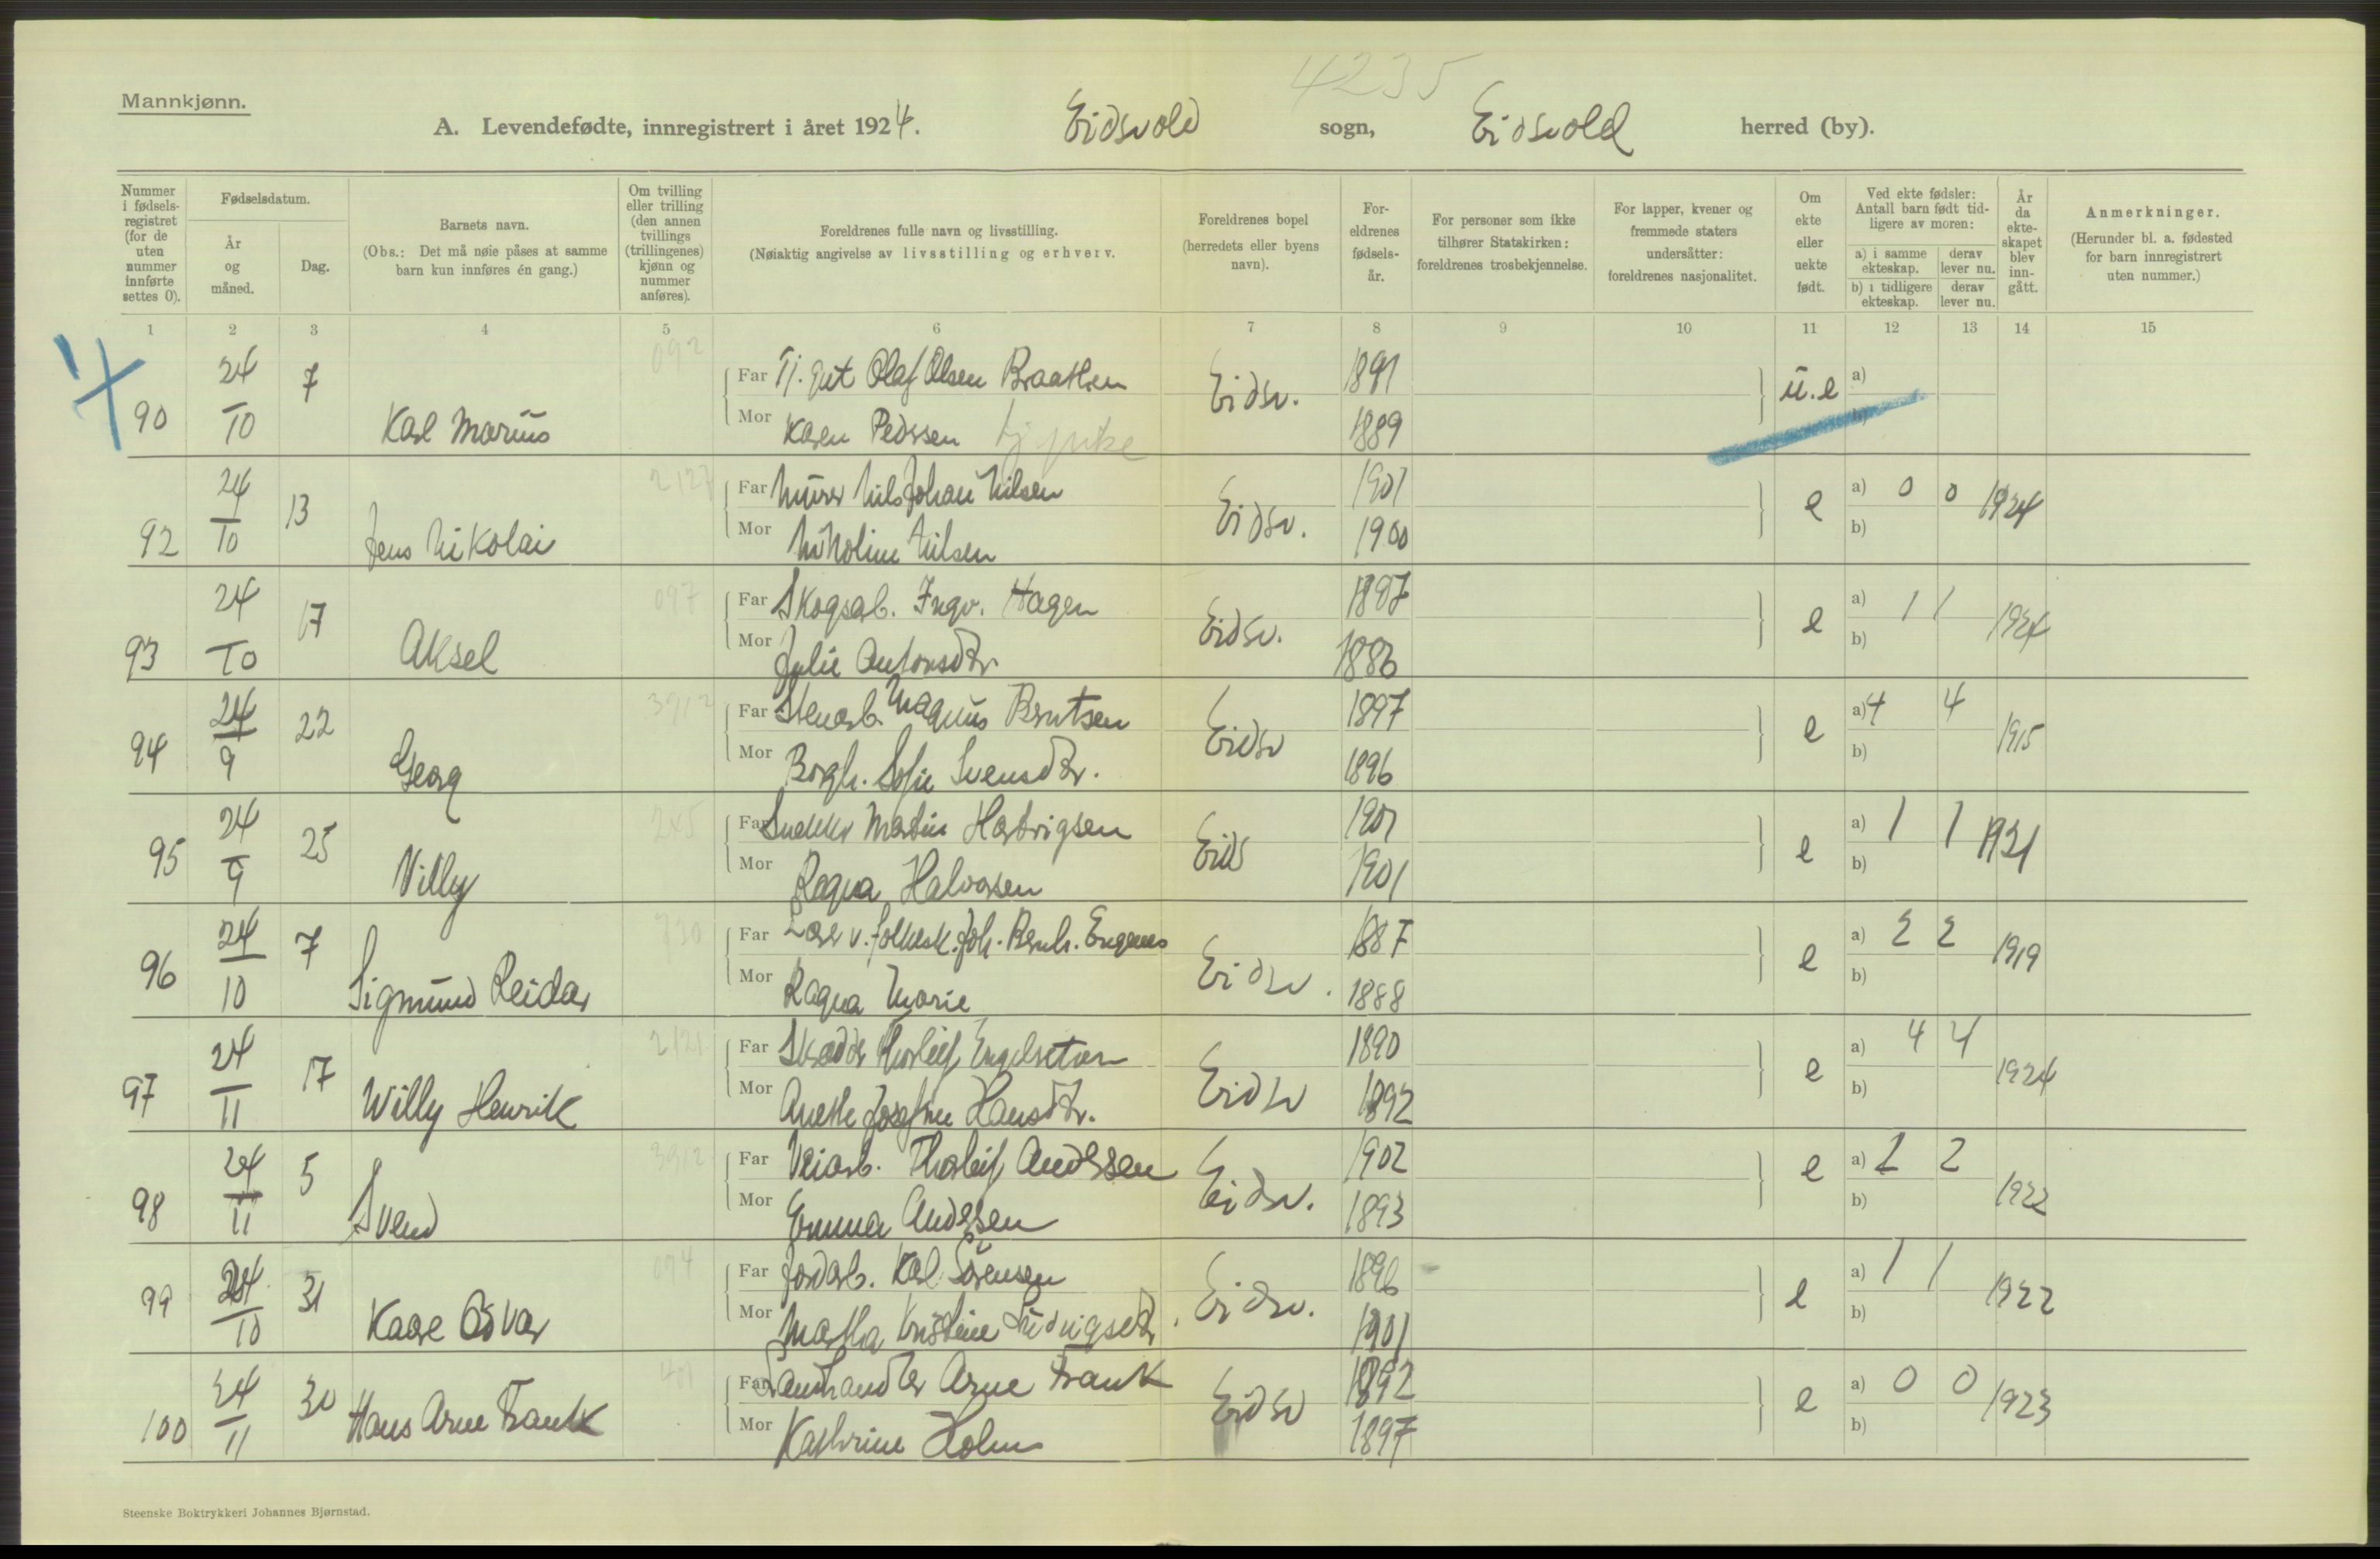 4235
Mannkjønn.
A. Levendefødte, innregistrert i året 1924. Eidsvold sogn, Eidsvold herred (by).
Nummer i fødsels-registret (for de uten nummer innførte settes 0).
Fødselsdatum.
År og måned.
Dag.
Barnets navn.
(Obs.: Det må nøie påses at samme barn kun innføres én gang.)
Om tvilling eller trilling (den annen tvillings (trillingenes) kjønn og nummer anføres).
Foreldrenes fulle navn og livsstilling.
(Nøiaktig angivelse av livsstilling og erhverv.
Foreldrenes bopel (herredets eller byens navn).
For-eldrenes fødsels-år.
For personer som ikke tilhører Statskirken: foreldrenes trosbekjennelse.
For lapper, kvener og fremmede staters undersåtter: foreldrenes nasjonalitet.
Om ekte eller uekte født.
Ved ekte fødsler: Antall barn født tid-ligere av moren:
a) i samme ekteskap. derav lever nu.
b) i tidligere ekteskap. derav lever nu.
År da ekte-skapet blev inn-gått.
Anmerkninger.
(Herunder bl. a. fødested for barn innregistrert uten nummer.)
1 2 3 4 5 6 7 8 9 10 11 12 13 14 15
90 24/10 7 Karl Marius 092 Far Tj. gut Olaf Olsen Braathen Eidsv. 1891 u.e a)
Mor Karen Pedersen tj. pike 1889 b)
92 24/10 13 Jens Nikolai 2127 Far Murer Nils Johan Nilsen Eidsv. 1901 e a) 0 0 1924
Mor Nikoline Nilsen 1900 b)
93 24/10 17 Aksel 097 Far Skogsarb. Ingv. Hagen Eidsv. 1897 e a) 1 1 1924
Mor Julie Antonsdtr. 1886 b)
94 24/9 22 Georg 3912 Far Stenarb. Magnus Berntsen Eidsv 1897 e a) 4 4 1915
Mor Borgh. Sofie Svensdtr. 1896 b)
95 24/9 25 Villy 245 Far Snekker Martin Hartvigsen Eids 1901 e a) 1 1 1921
Mor Ragna Halvorsen 1901 b)
96 24/10 7 Sigmund Reidar 730 Far Lærer v. folkesk. Joh. Bernh. Engenes Eidsv. 1887 e a) 2 2 1919
Mor Ragna Marie 1888 b)
97 24/11 17 Willy Henrik 2121 Far Skrædder Thorleif Engelsetær Eidsv 1890 e a) 4 4 1924
Mor Anethe Josefine Hansdtr. 1892 b)
98 24/11 5 Svend 3912 Far Veiarb. Thorleif Andersen Eidsv. 1902 e a) 2 2 1922
Mor Emma Andersen 1893 b)
99 24/10 31 Kaare Osvar 094 Far Jordarb. Karl Sørensen Eidsv. 1896 e a) 1 1 1922
Mor Martha Kristine Ludvigsdtr. 1901 b)
100 24/11 30 Hans Arne Frank 401 Far Landhandler Arne Frank Eidsv 1892 e a) 0 0 1923
Mor Kathrine Holm 1897 b)
Steenske Boktrykkeri Johannes Bjørnstad.